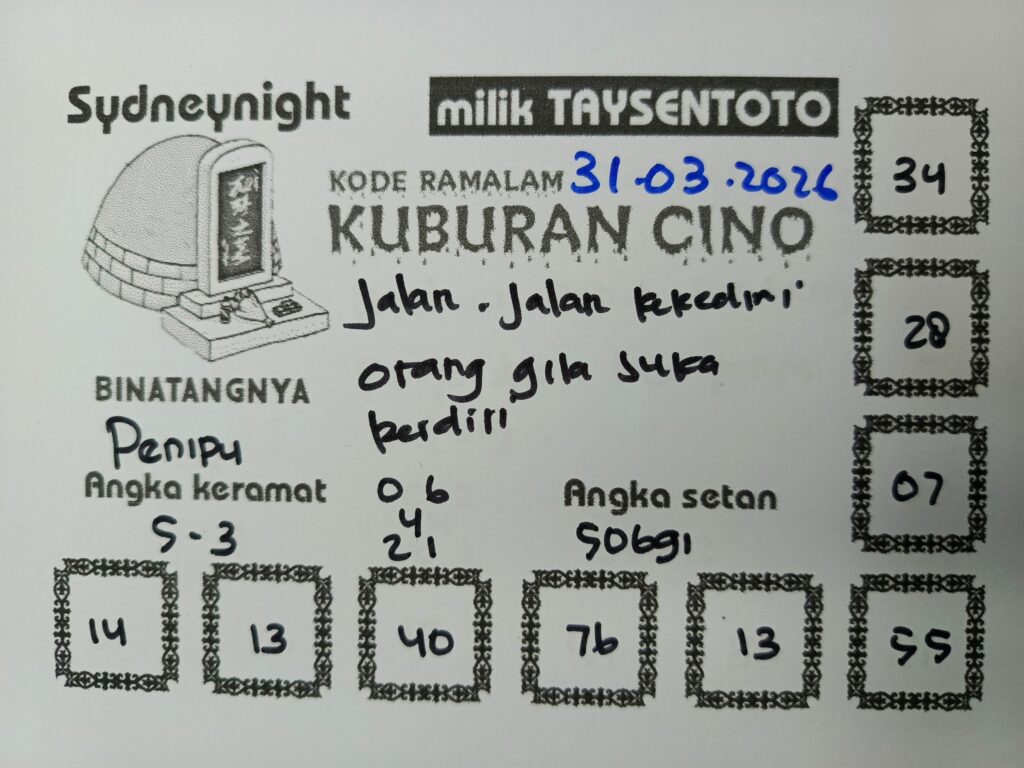 Sydneynight
milik TAYSENTOTO
KODE RAMALAM 31.03.2026
KUBURAN CINO
Jalan. Jalan kekediri
orang gila suka
berdiri
BINATANGNYA
Penipu
Angka keramat
5-3
0 6
4
2 1
Angka setan
50691
34
28
07
14
13
40
76
13
55